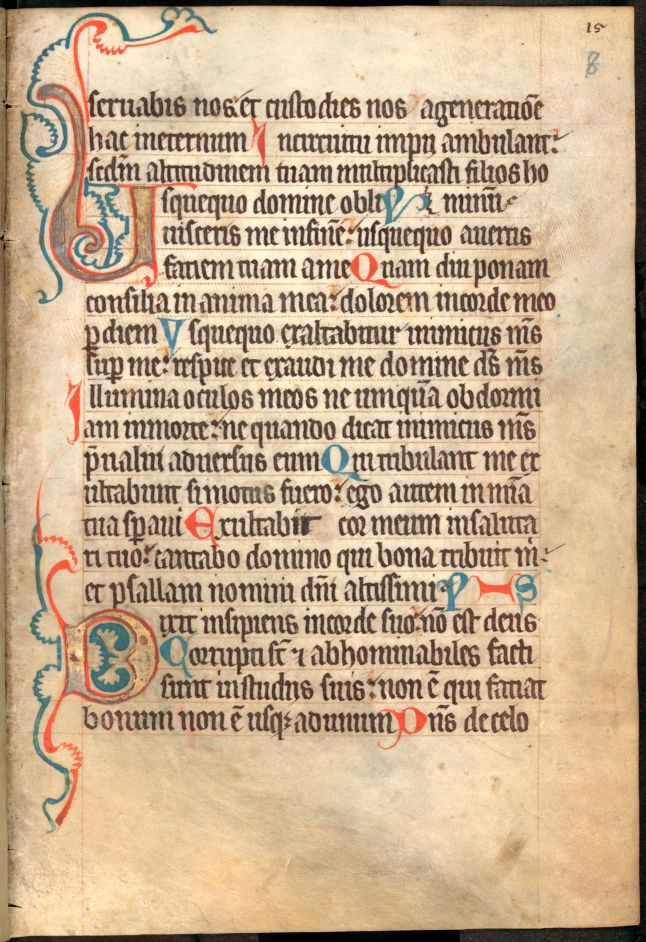 15
8
seruabis nos: et custodies nos ageneratiōe
hac ineternum In circuitu impij ambulant:
scd̄m altitudinem tuam multiplicasti filios ho
Usquequo domine obli P minū
uisceris me infinē: usquequo auertis
faciem tuam a me Quam diu ponam
consilia in anima mea: dolorem incorde meo
p diem Vsquequo exaltabitur inimicus m̄s
sup me: respice et exaudi me domine ds̄ m̄s
Illumina oculos meos ne umquā obdormi
am inmorte: ne quando dicat inimicus m̄s
p̄ualui aduersus eum Qui tribulant me ex
ultabunt si motus fuero: ego autem in mīa
tua sp̄aui Exultabit cor meum insaluta
ri tuo: cantabo domino qui bona tribuit m̄:
et psallam nomini dn̄i altissimi PIS
Dixit insipiens incorde suo: nō est deus
Corrupti st̄ ⁊ abhominabiles facti
sunt instudijs suis: non ē qui faciat
bonum non ē usq; adunum Dn̄s decelo